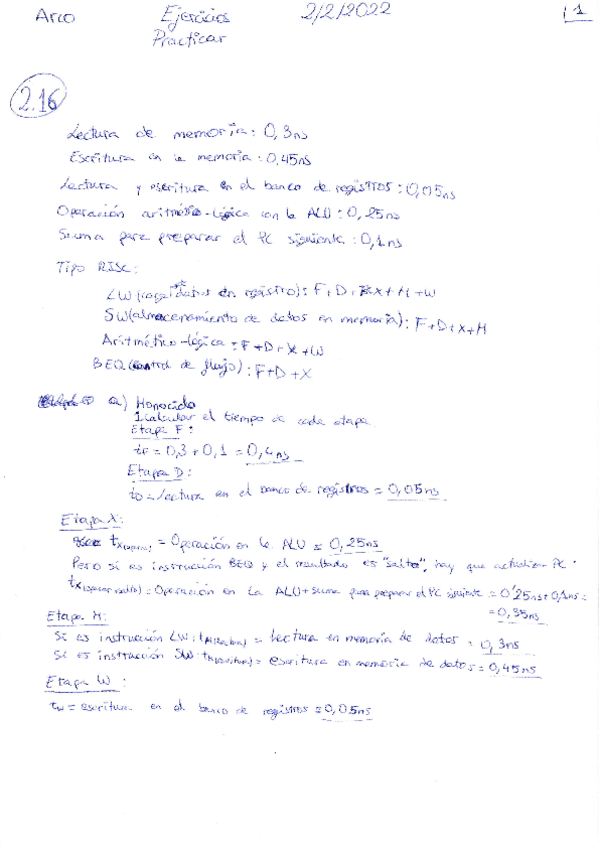 Arco Ejercicios 2/2/2022 1
Practicar
2.16
Lectura de memoria: 0,3ns
Escritura en la memoria: 0,45ns
Lectura y escritura en el banco de registros: 0,05ns
Operación aritmético-lógica con la ALU: 0,25ns
Suma para preparar el PC siguiente: 0,1ns
Tipo RISC:
LW(carga datos en registro): F+D+X+M+W
SW(almacenamiento de datos en memoria): F+D+X+M
Aritmético-lógica = F+D+X+W
BEQ(control de flujo): F+D+X
a) Monociclo
1 Calcular el tiempo de cada etapa
Etapa F:
tF = 0,3 + 0,1 = 0,4ns
Etapa D:
tD = lectura en el banco de registros = 0,05ns
Etapa X:
tX = Operación en la ALU = 0,25ns
Pero si es instrucción BEQ y el resultado es "salto", hay que actualizar PC:
tX = Operación en la ALU + suma para preparar el PC siguiente = 0'25ns + 0,1ns =
= 0,35ns
Etapa M:
Si es instrucción LW: tM = lectura en memoria de datos = 0,3ns
Si es instrucción SW: tM(escritura) = escritura en memoria de datos = 0,45ns
Etapa W:
tW = escritura en el banco de registros = 0,05ns